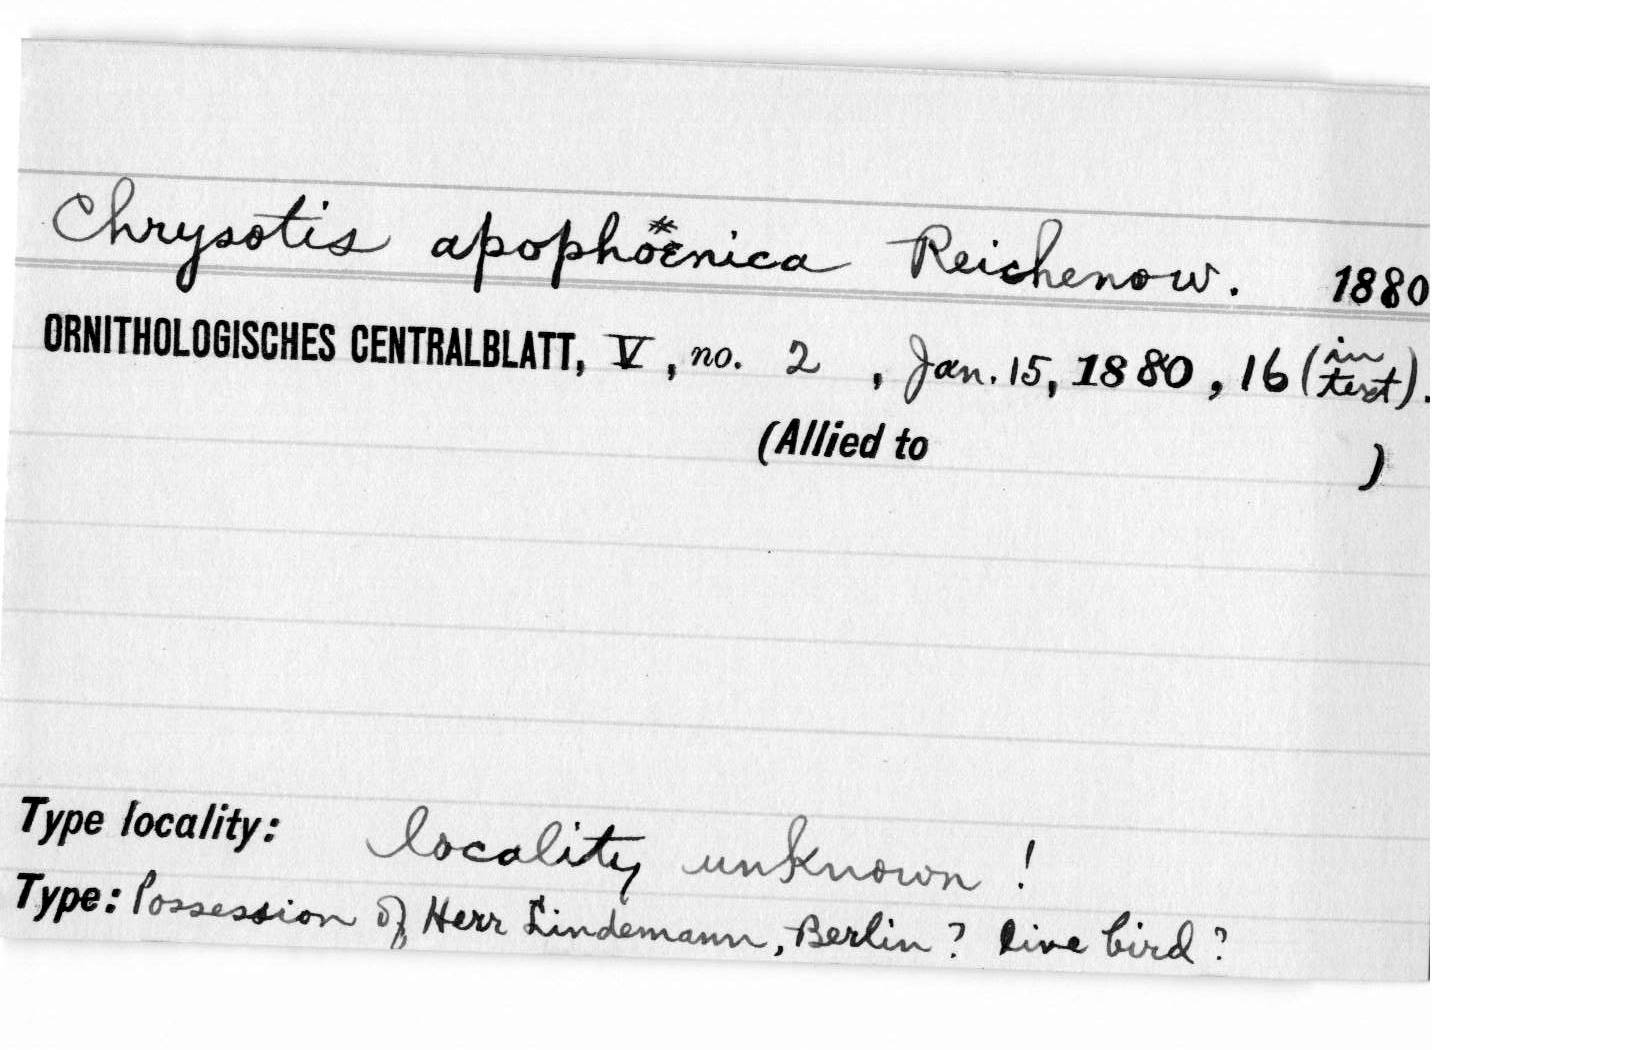 Chrysotis apophoenica Reichenow. 1880
ORNITHOLOGISCHES CENTRALBLATT, V, no. 2, Jan. 15, 1880, 16 (in text).
(Allied to )
Type locality: locality unknown!
Type: Possession of Herr Lindemann, Berlin? live bird?